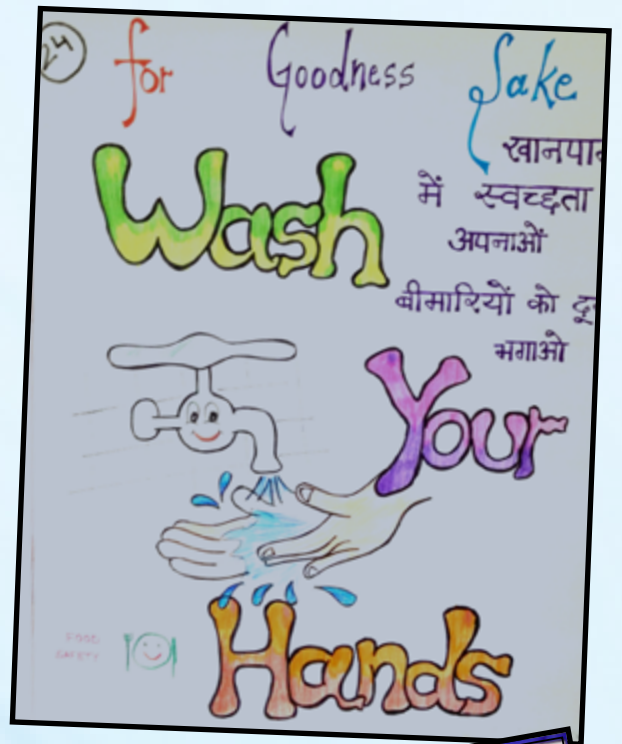 24
for Goodness Sake
Wash
खानपान
में स्वच्छता
अपनाओं
बीमारियों को
भगाओ
Your
Hands
FOOD
SAFETY